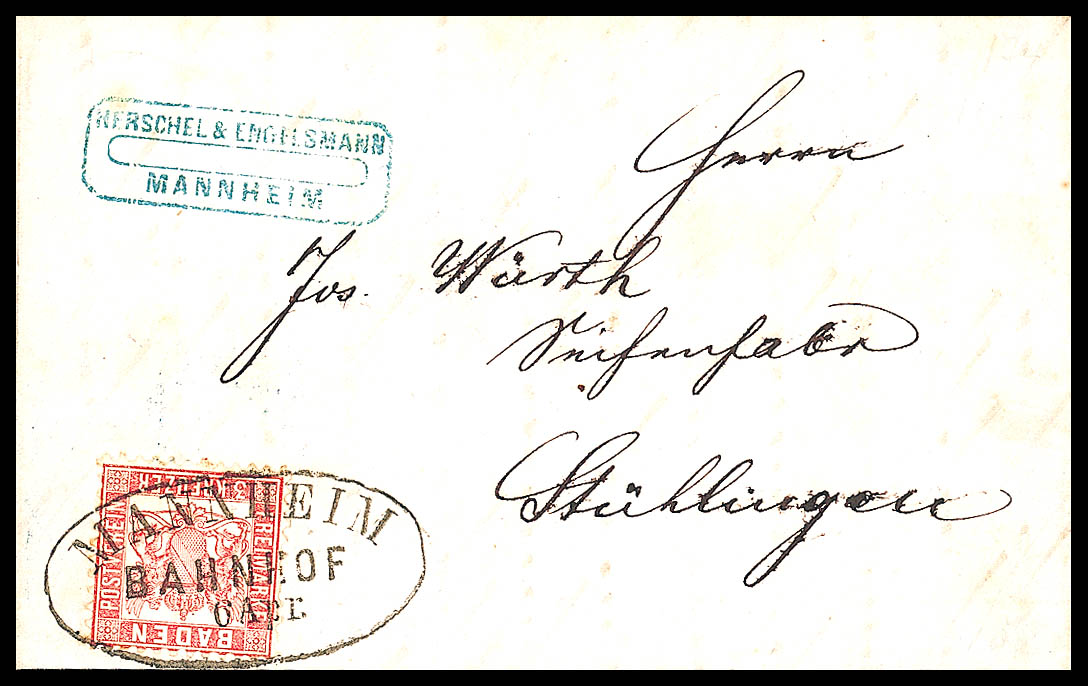 HERSCHEL & ENGELSMANN
MANNHEIM
Herrn
Jos. Würth
Seifenfabr
Stühlingen
MANNHEIM
BAHNHOF
BADEN
FREIMARKE
POSTVEREIN
3 KREUZER